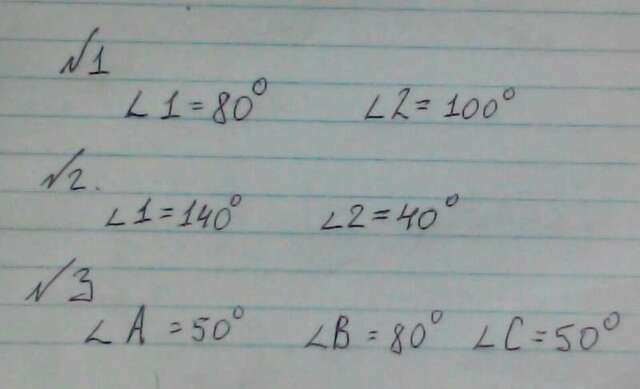 №1
∠1=80° ∠2=100°
№2.
∠1=140° ∠2=40°
№3
∠A=50° ∠B=80° ∠C=50°